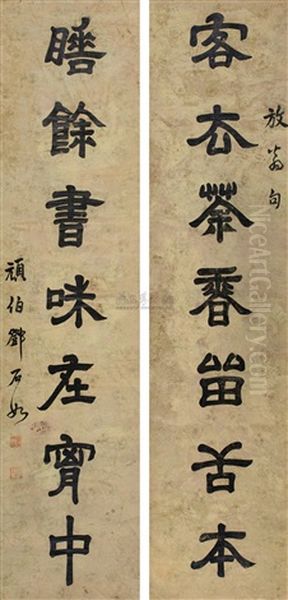 客去茶香留舌本
放翁句
睡餘書味在胷中
頑伯鄧石如